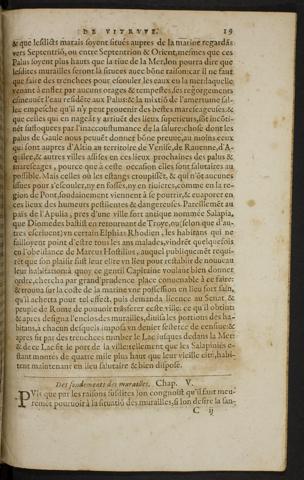 DE VITRVVE. 19
& que lesdicts marais soyent situés aupres de la marine regardãs
vers Septentriõ, ou entre Septentrion & Orient, mesmes que ces
Palus soyent plus hauts que la riue de la Mer, lon pourra dire que
lesdites murailles seront là situees auec bõne raison: car il ne faut
que faire des trenchees pour escouler les eaux en la mer: laquelle
venant à enfler par aucuns orages & tempestes, ses regorgements
esmeuuẽt l'eau residẽte aux Palus: & la mixtiõ de l'amertume salsuglee
empesche qu'il n'y peut prouenir des bestes marescageuses: &
que celles qui en nageãt y arriuẽt des lieux superieurs, sõt incõtinẽt
suffoquees par l'inaccoustumance de la saleure: chose dont les
palus de Gaule nous peuuẽt donner bõne preuue, au moins ceux
qui sont aupres d'Altin au territoire de Venise, de Rauenne, d'Aquilee,
& autres villes assises en ces lieux prochaines des palus &
marescages, pource que à ceste occasion elles sont salutaires au
possible. Mais celles où les estangs croupissẽt, & qui n'õt aucunes
issues pour s'escouler, ny en fossés, ny en riuieres, comme en la region
de Pont, soudainement viennent à se pourrir, & euaporer en
ces lieux des humeurs pestilentes & dangereuses. Pareillemẽt au
païs de l'Apulia, pres d'vne ville fort antique nommée Salapia,
que Diomedes bastist en retournant de Troye, ou (selon que d'autres
escriuent) vn certain Elphias Rhodien, les habitans qui ne
failloyent point d'estre tous les ans malades, vindrẽt quelquefois
en l'obeïssance de Marcus Hostilius, auquel publiquemẽt requirẽt
que son plaisir fust leur eslire vn lieu pour restablir de nouueau
leur habitation: à quoy ce gentil Capitaine voulant bien donner
ordre, chercha par grand' prudence place conuenable à ce faire:
& trouua sur la coste de la marine vne possession en lieu fort sain,
qu'il achetta pour tel effect, puis demanda licence au Senat &
peuple de Rome de pouuoir trãsferer ceste ville: ce qu'il obtint:
& apres designa l'enclos des murailles, diuisa les portions des habitans,
à chacun desquels imposa vn denier sesterce de censiue: &
apres fit par des trenchees tumber le Lac susques dedans la Mer:
& de ce Lac fit le port de la ville: tellement que les Salapiniẽs estant
montés de quatre mile plus haut que leur vieille cité, habitent
maintenant en lieu salutaire & bien disposé.
Des fondements des murailles. Chap. V.
PVis que par les raisons susdites lon congnoist qu'il faut meurement
pouruoir à la situatiõ des murailles, si lon desire la san-
C ij